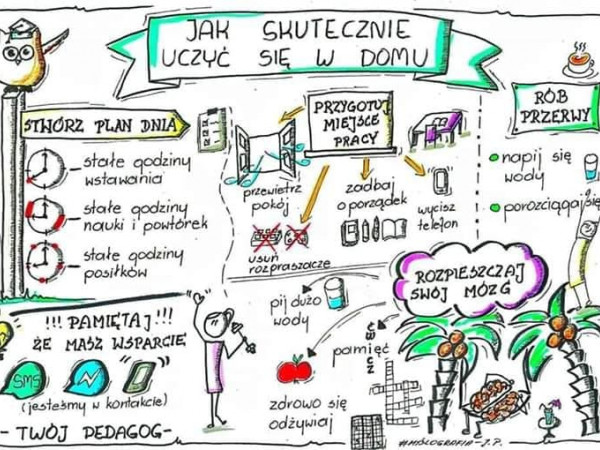 JAK SKUTECZNIE
UCZYĆ SIĘ W DOMU
STWÓRZ PLAN DNIA
stałe godziny
wstawania
stałe godziny
nauki i powtórek
stałe godziny
posiłków
PRZYGOTUJ
MIEJSCE
PRACY
przewietrz
pokój
zadbaj
o porządek
wycisz
telefon
usuń
rozpraszacze
RÓB
PRZERWY
napij się
wody
porozciągaj się
ROZPIESZCZAJ
SWÓJ MÓZG
pij dużo
wody
pamięć
zdrowo się
odżywiaj
!!! PAMIĘTAJ !!!
ŻE MASZ WSPARCIE
SMS
(jesteśmy w kontakcie)
- TWÓJ PEDAGOG -